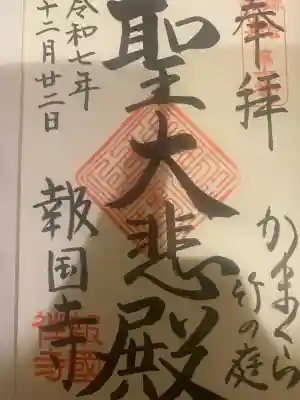 奉拝
かまくら
竹の庭
聖大悲殿
令和七年
十二月廿二日
報国寺